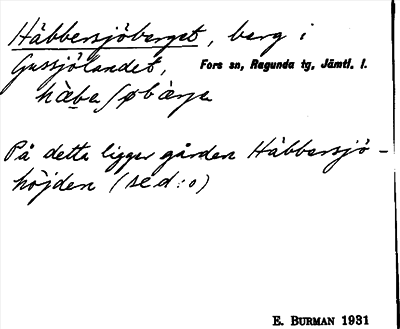 Häbbersjöberget, berg i
Gussjölandet, Fors sn, Ragunda tg, Jämtl. l.
hàbeʃøbàrje
På detta ligger gården Häbbersjö-
höjden (se d:o)
E. BURMAN 1931